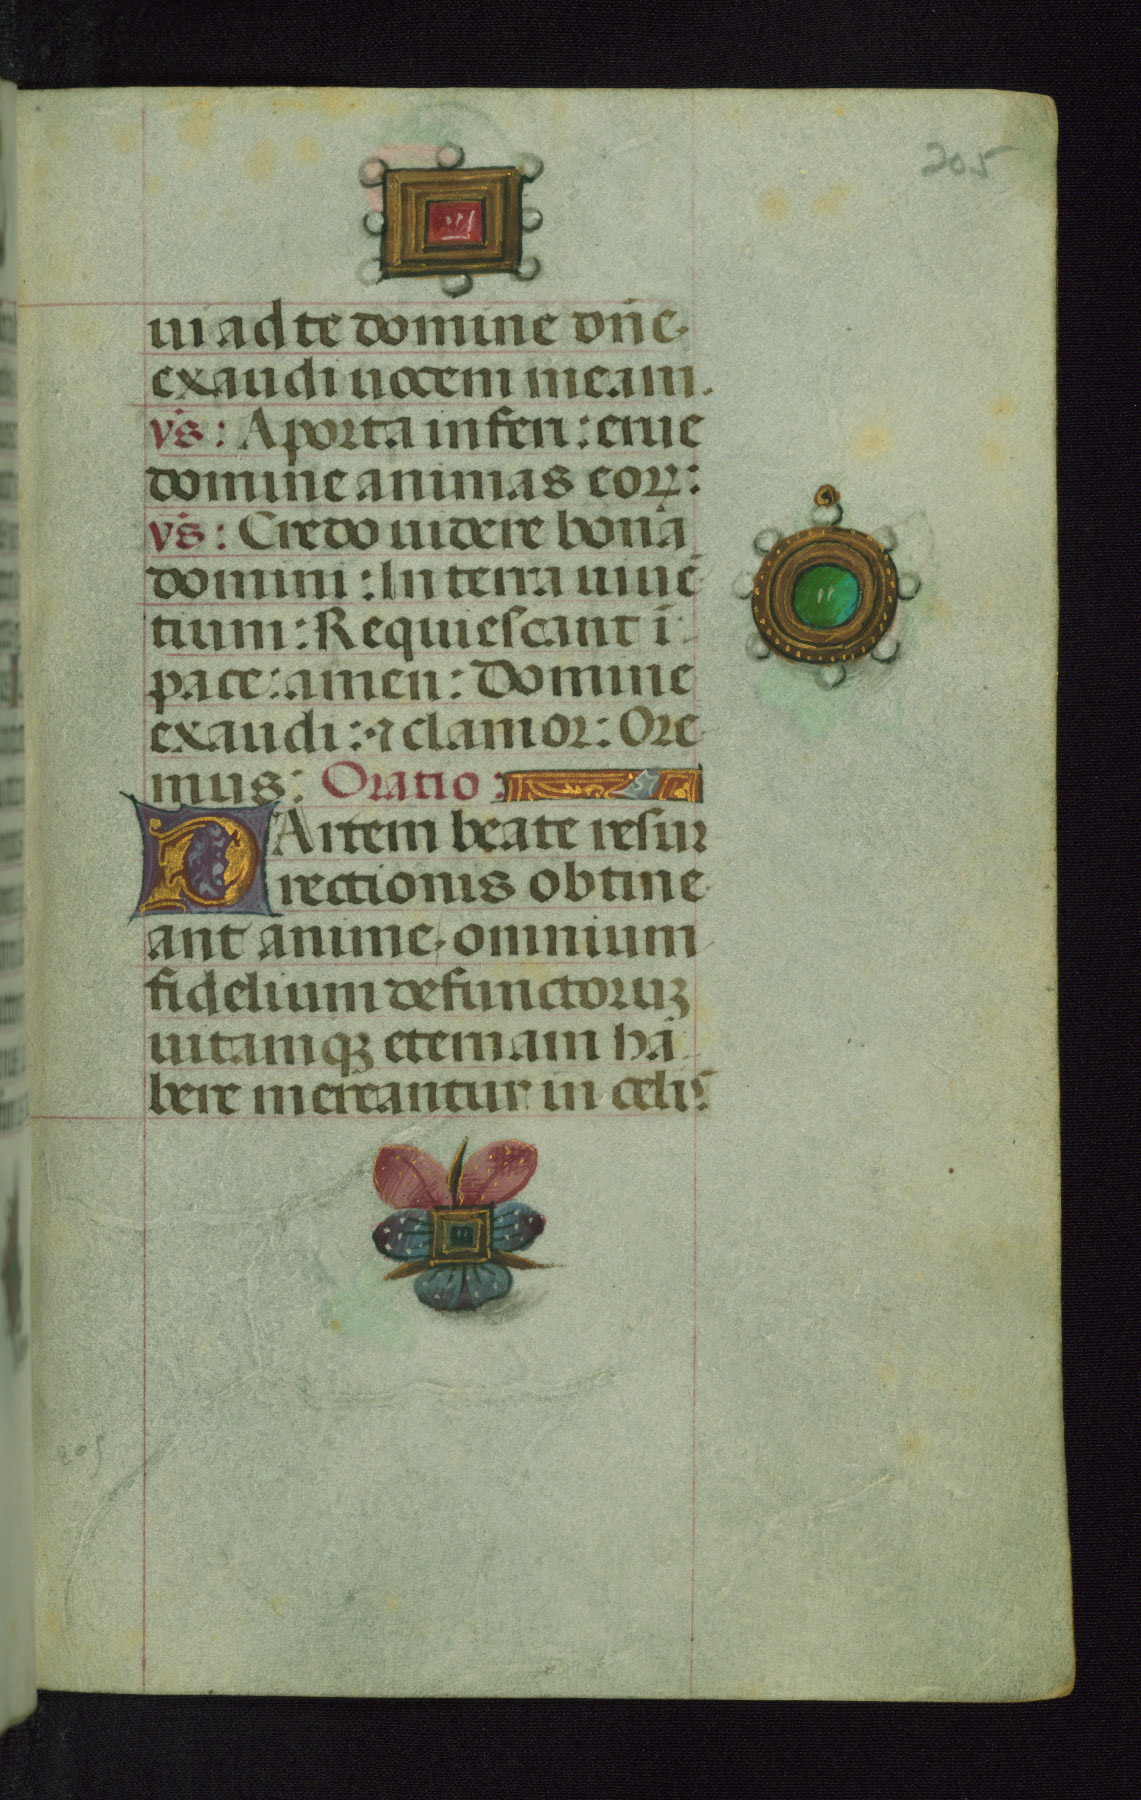 205
ui ad te domine dn̄e
exaudi uocem meam.
vs̄: A porta inferi: erue
domine animas eoꝝ:
vs̄: Credo uidere bona
domini: In terra uiuē
tium: Requiescant ī
pace: amen: Domine
exaudi: ⁊ clamor: Ore
mus: Oratio:
PArtem beate resur
rectionis obtine
ant anime omnium
fidelium defunctoruꝫ
uitamqꝫ eternam ha
bere mereantur in celis
205